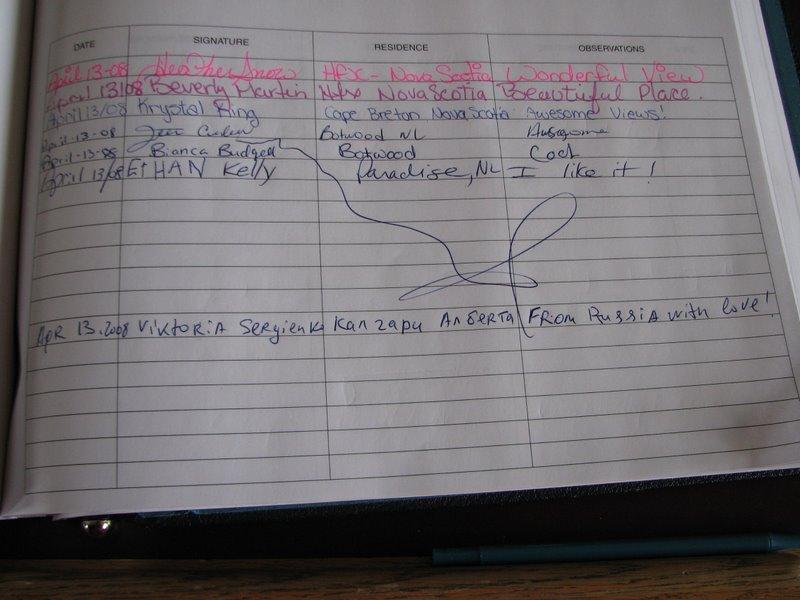 DATE SIGNATURE RESIDENCE OBSERVATIONS
April 13-08 Heather Snow HFX - Nova Scotia Wonderful View
April 13/08 Beverly Martin Hfx Nova Scotia Beautiful Place.
April 13/08 Krystal Ring Cape Breton Nova Scotia Awesome Views!
April-13-08 Botwood NL Awesome
April-13-08 Bianca Budgell Botwood Cool
April 13/08 EtHAN Kelly Paradise, NL I like it!
Apr 13.2008 Viktoria Sergienko Калгари Алберта From Russia with love!